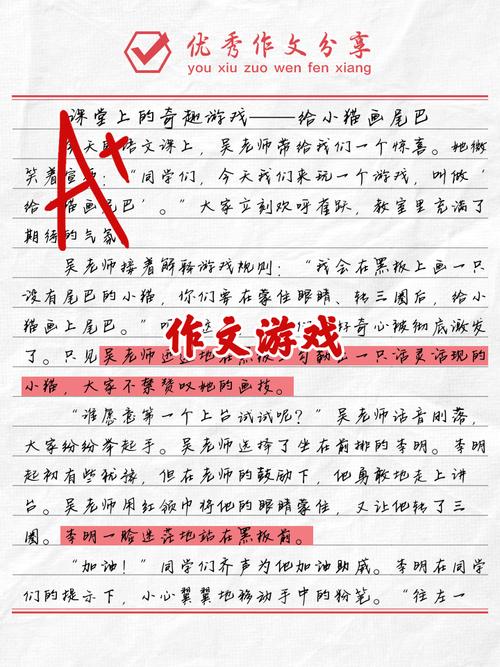 优秀作文分享
you xiu zuo wen fen xiang
课堂上的奇趣游戏——给小猫画尾巴
A+
天 语文课上，吴老师带给我们一个惊喜。她微
笑着宣 ：“同学们，今天我们来玩一个游戏，叫做‘
给 画尾巴’。”大家立刻欢呼雀跃，教室里充满了
期待的气氛
吴老师接着解释游戏规则：“我会在黑板上画一只
没有尾巴的小猫，你们要在蒙住眼睛、转三圈后，给小
猫画上尾巴。” 好奇心被彻底激发
了。只见吴老师 地在黑板 一只活灵活现的
小猫，大家不禁赞叹她的画技。
作文游戏
“谁愿意第一个上台试试呢？”吴老师话音刚落，
大家纷纷举起手。吴老师选择了坐在前排的李明。李明
起初有些犹豫，但在老师的鼓励下，他勇敢地走上讲
台。吴老师用红领巾将他的眼睛蒙住，又让他转了三
圈。李明一脸迷茫地站在黑板前。
“加油！”同学们齐声为他加油助威。李明在同学
们的提示下，小心翼翼地移动手中的粉笔。“往左一